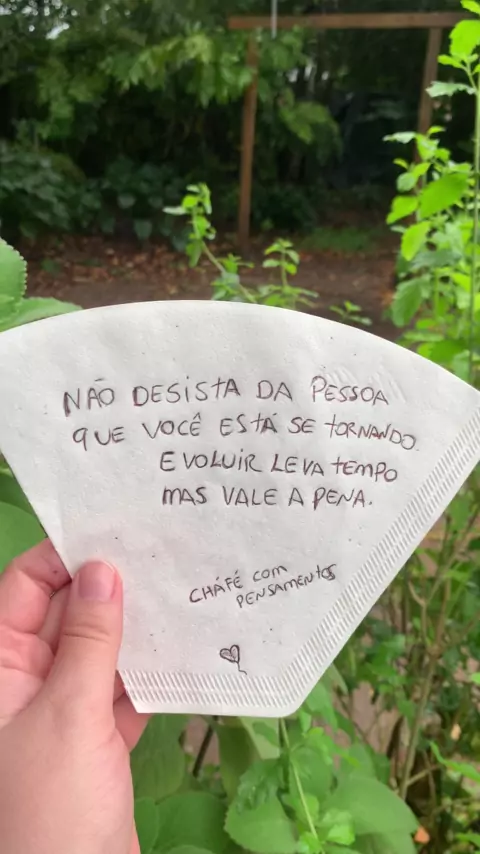 NÃO DESISTA DA PESSOA
QUE VOCÊ ESTÁ SE TORNANDO.
EVOLUIR LEVA TEMPO
MAS VALE A PENA.
CHÁFÉ COM
PENSAMENTOS